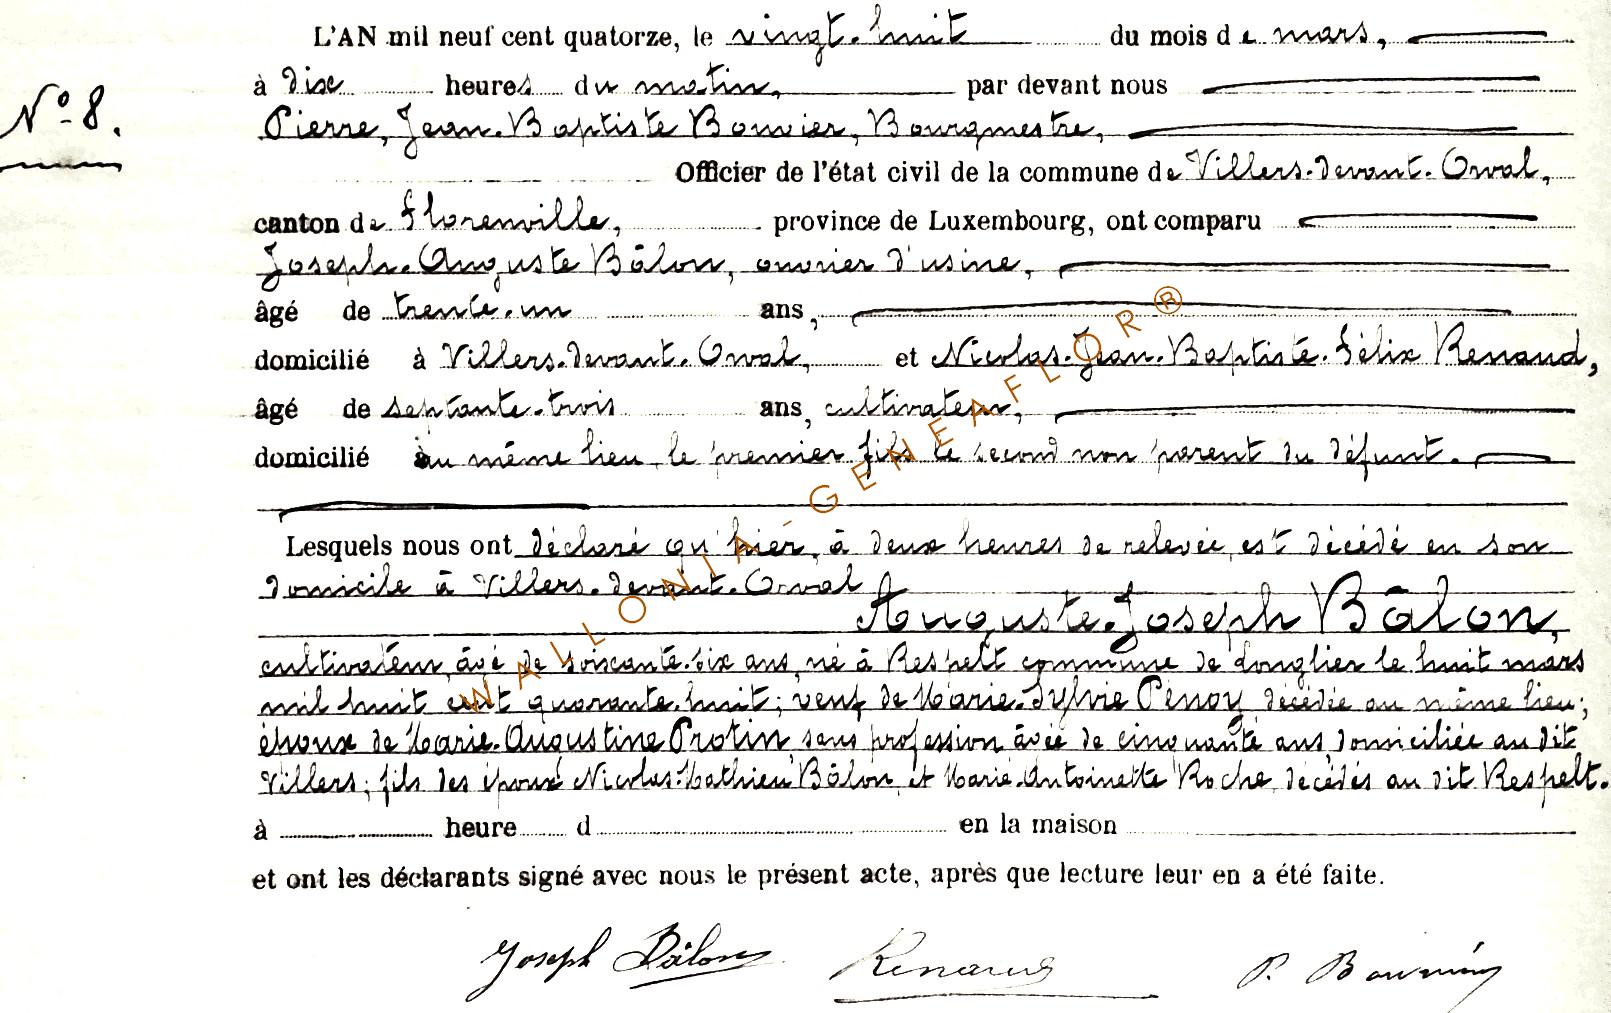 L'AN mil neuf cent quatorze, le vingt-huit du mois de mars,
à dix heures du matin, par devant nous
N° 8.
Pierre, Jean-Baptiste Bouvier, Bourgmestre,
Officier de l'état civil de la commune de Villers-devant-Orval,
canton de Florenville, province de Luxembourg, ont comparu
Joseph-Auguste Bâlon, ouvrier d'usine,
âgé de trente-un ans,
domicilié à Villers-devant-Orval, et Nicolas-Jean-Baptiste-Félix Renaud,
âgé de septante-trois ans, cultivateur,
domicilié au même lieu, le premier fils le second non parent du défunt.
Lesquels nous ont déclaré qu'hier, à deux heures de relevée, est décédé en son
domicile à Villers-devant-Orval
Auguste-Joseph Bâlon,
cultivateur, âgé de soixante-six ans, né à Respelt commune de Longlier le huit mars
mil huit cent quarante-huit; veuf de Marie-Sylvie Pénoy décédée au même lieu;
époux de Marie-Augustine Protin, sans profession, âgée de cinquante ans domiciliée au dit
Villers; fils des époux Nicolas-Mathieu Bâlon et Marie-Antoinette Roche, décédés au dit Respelt.
à heure d en la maison
et ont les déclarants signé avec nous le présent acte, après que lecture leur en a été faite.
Joseph Bâlon Renaud P. Bouvier
WALLONIA-GENEAFLOR®